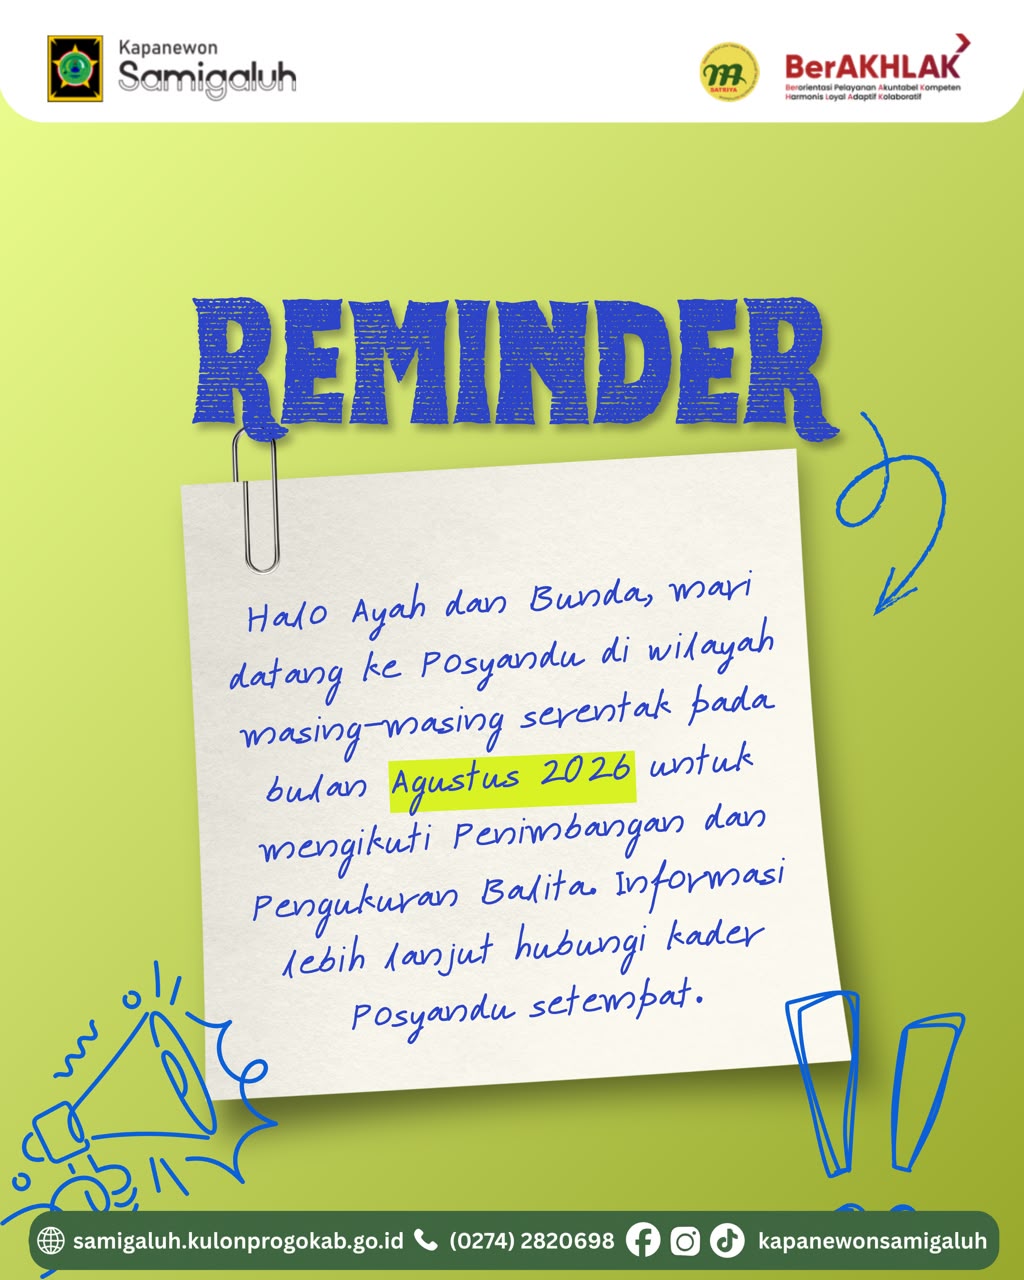 Kapanewon
Samigaluh
SATRIYA
BerAKHLAK
Berorientasi Pelayanan Akuntabel Kompeten
Harmonis Loyal Adaptif Kolaboratif
REMINDER
Halo Ayah dan Bunda, mari
datang ke Posyandu di wilayah
masing-masing serentak pada
bulan Agustus 2026 untuk
mengikuti Penimbangan dan
Pengukuran Balita. Informasi
lebih lanjut hubungi kader
Posyandu setempat.
samigaluh.kulonprogokab.go.id (0274) 2820698 kapanewonsamigaluh